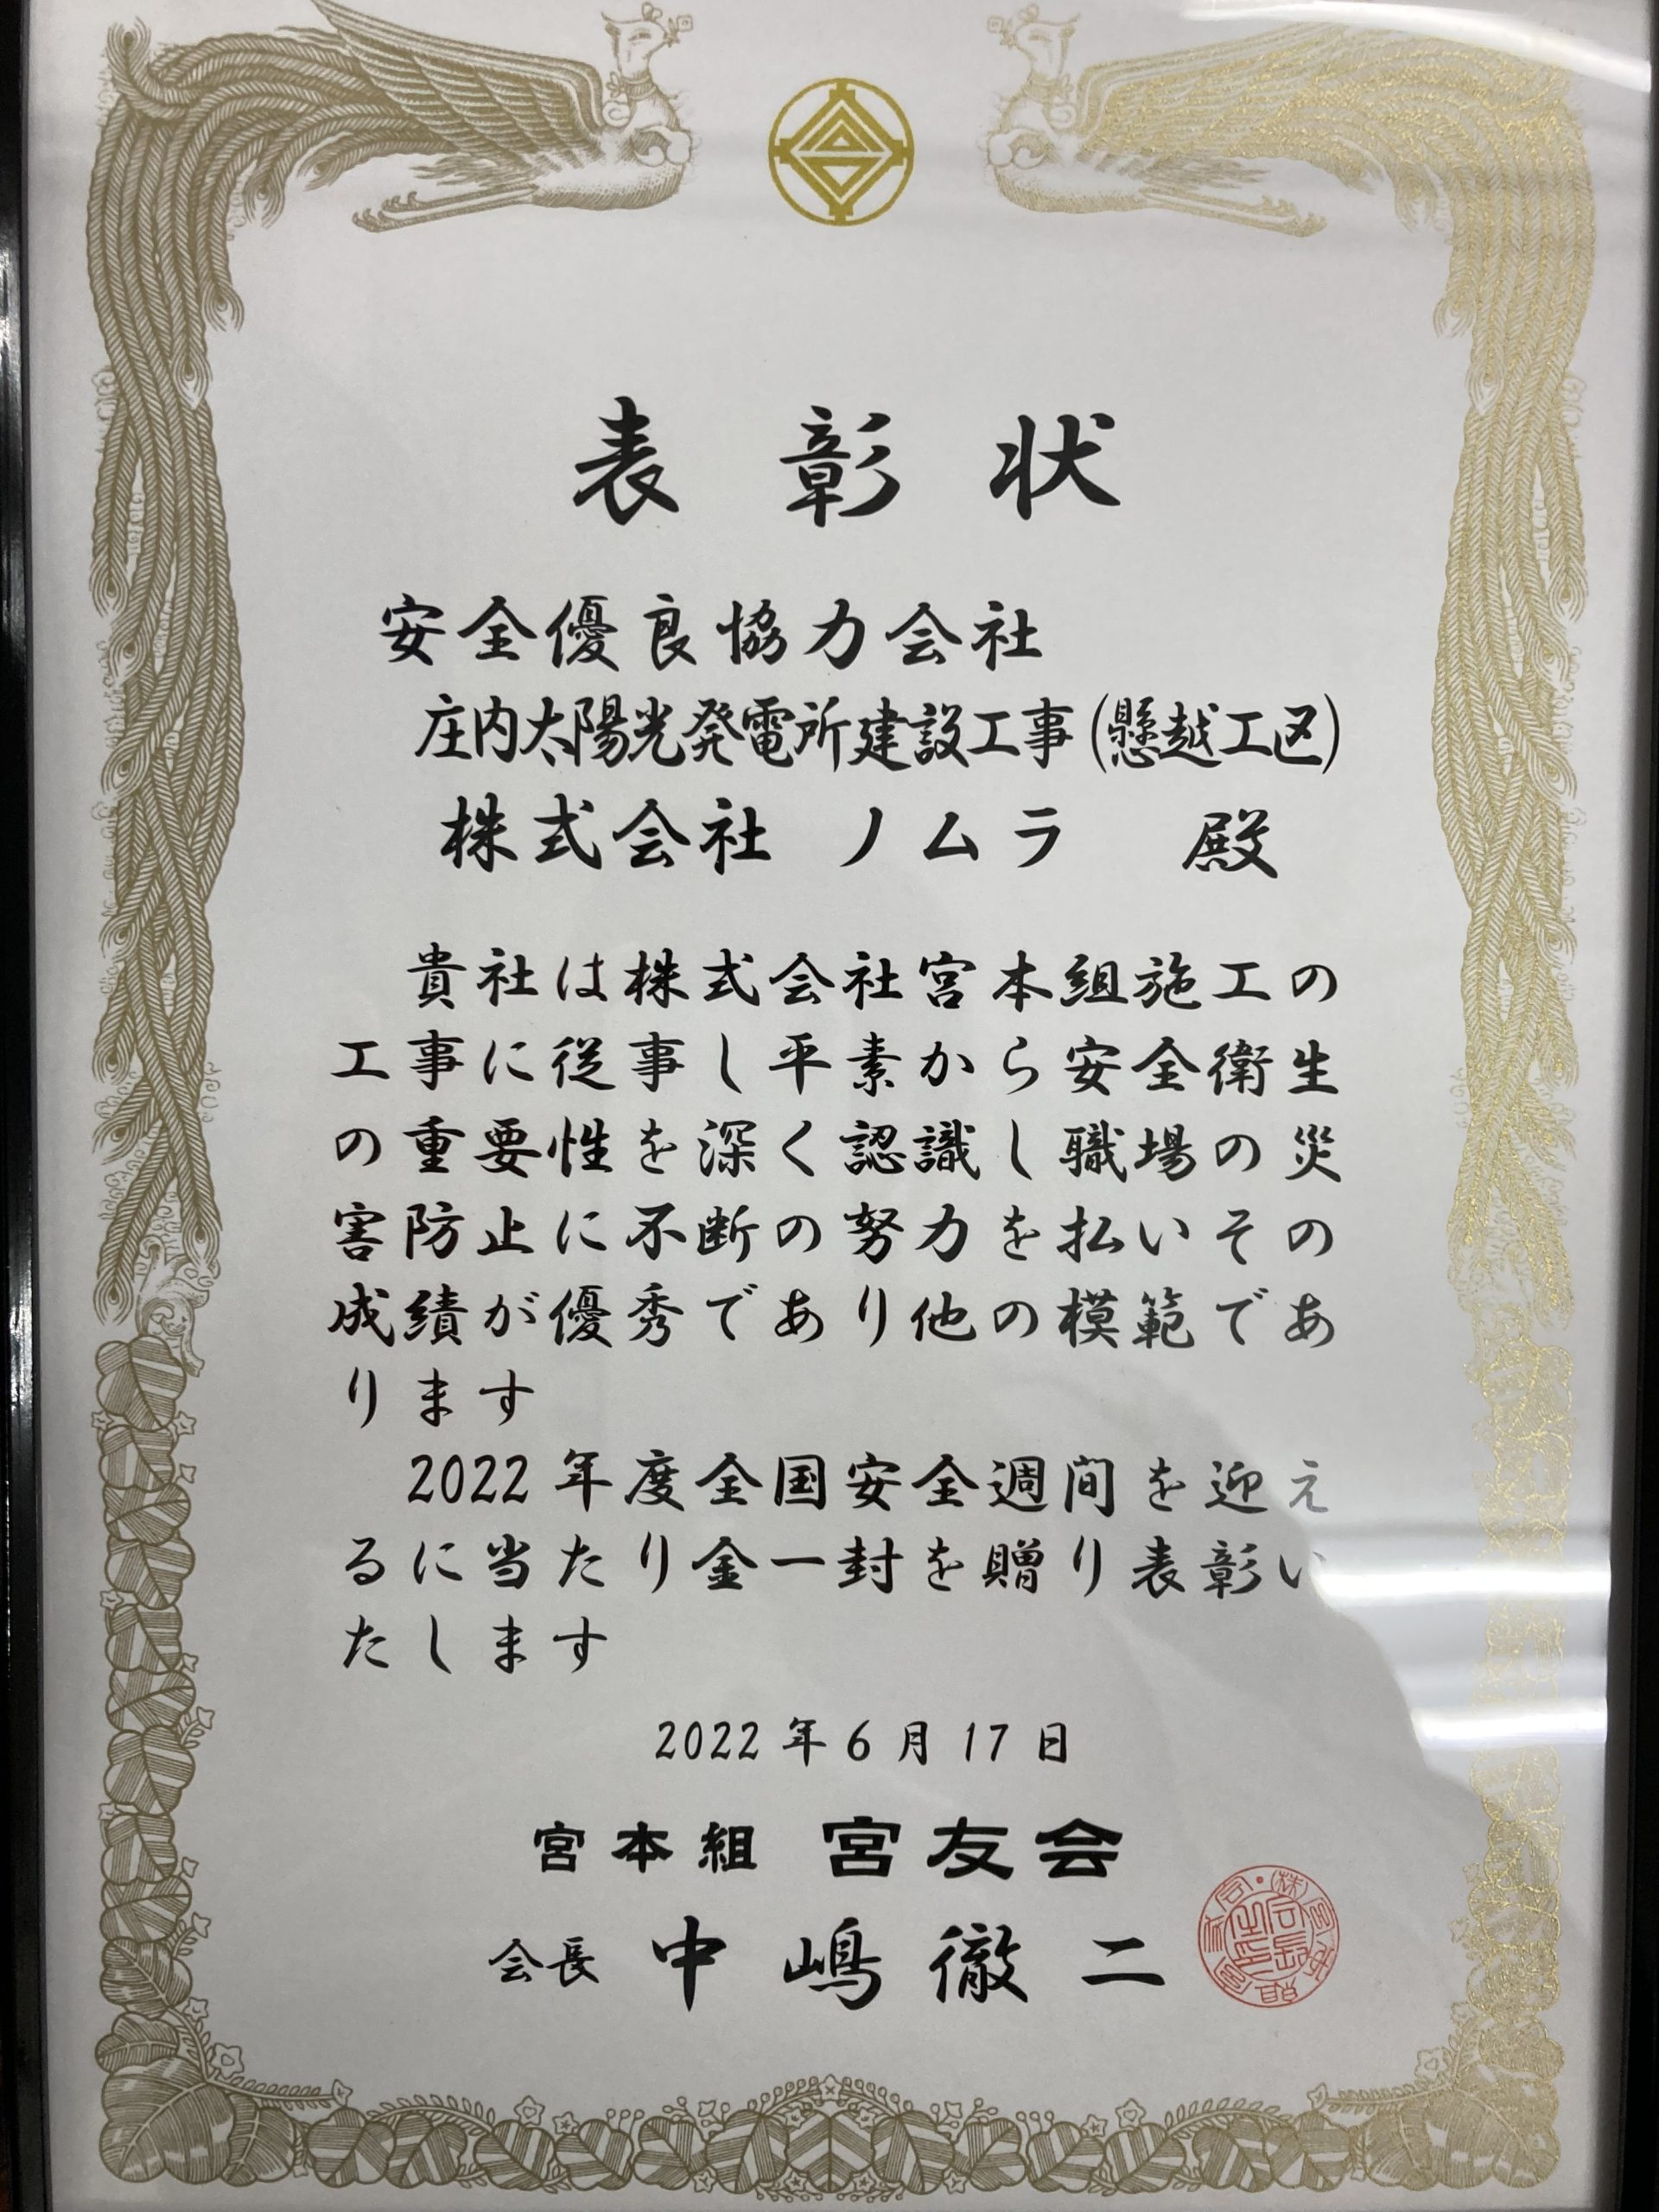 表彰状
安全優良協力会社
庄内太陽光発電所建設工事(懸越工区)
株式会社 ノムラ 殿
貴社は株式会社宮本組施工の
工事に従事し平素から安全衛生
の重要性を深く認識し職場の災
害防止に不断の努力を払いその
成績が優秀であり他の模範であ
ります
2022年度全国安全週間を迎え
るに当たり金一封を贈り表彰い
たします
2022年6月17日
宮本組 宮友会
会長 中嶋徹二